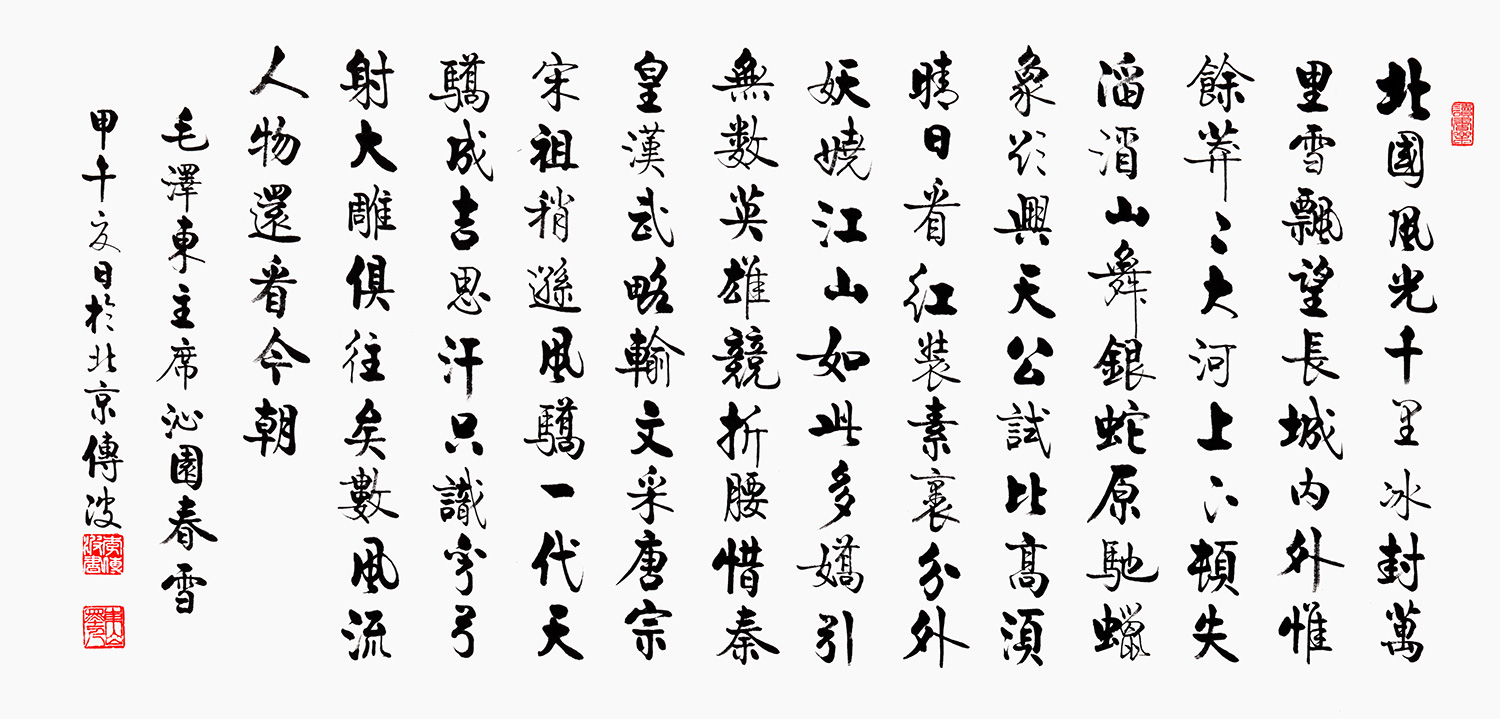 北國風光千里冰封萬
里雪飄望長城内外惟
餘莽〻大河上下頓失
滔滔山舞銀蛇原馳蠟
象欲與天公試比高須
晴日看紅裝素裹分外
妖嬈江山如此多嬌引
無数英雄競折腰惜秦
皇漢武略輸文采唐宗
宋祖稍遜風驕一代天
驕成吉思汗只識彎弓
射大雕俱往矣數風流
人物還看今朝
毛澤東主席沁園春雪
甲午夏日於北京傳波